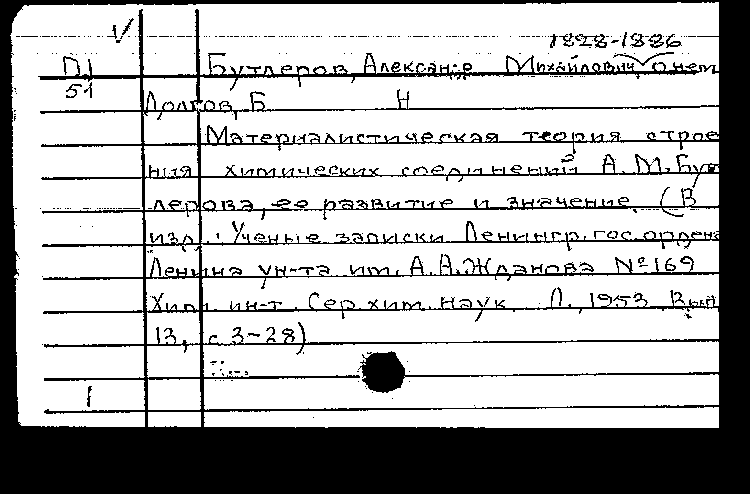 V
1828-1886
П1 Бутлеров, Александр Михайлович, о нем
51
Долгов, Б Н
Материалистическая теория строе
ния химических соединений А.М.Бут
лерова, ее развитие и значение. (В
изд.: Ученые записки Ленингр.гос.ордена
Ленина ун-та им. А.А.Жданова №169
Хим. ин-т. Сер.хим.наук. Л., 1953 Вып.
13, с 3-28)
1